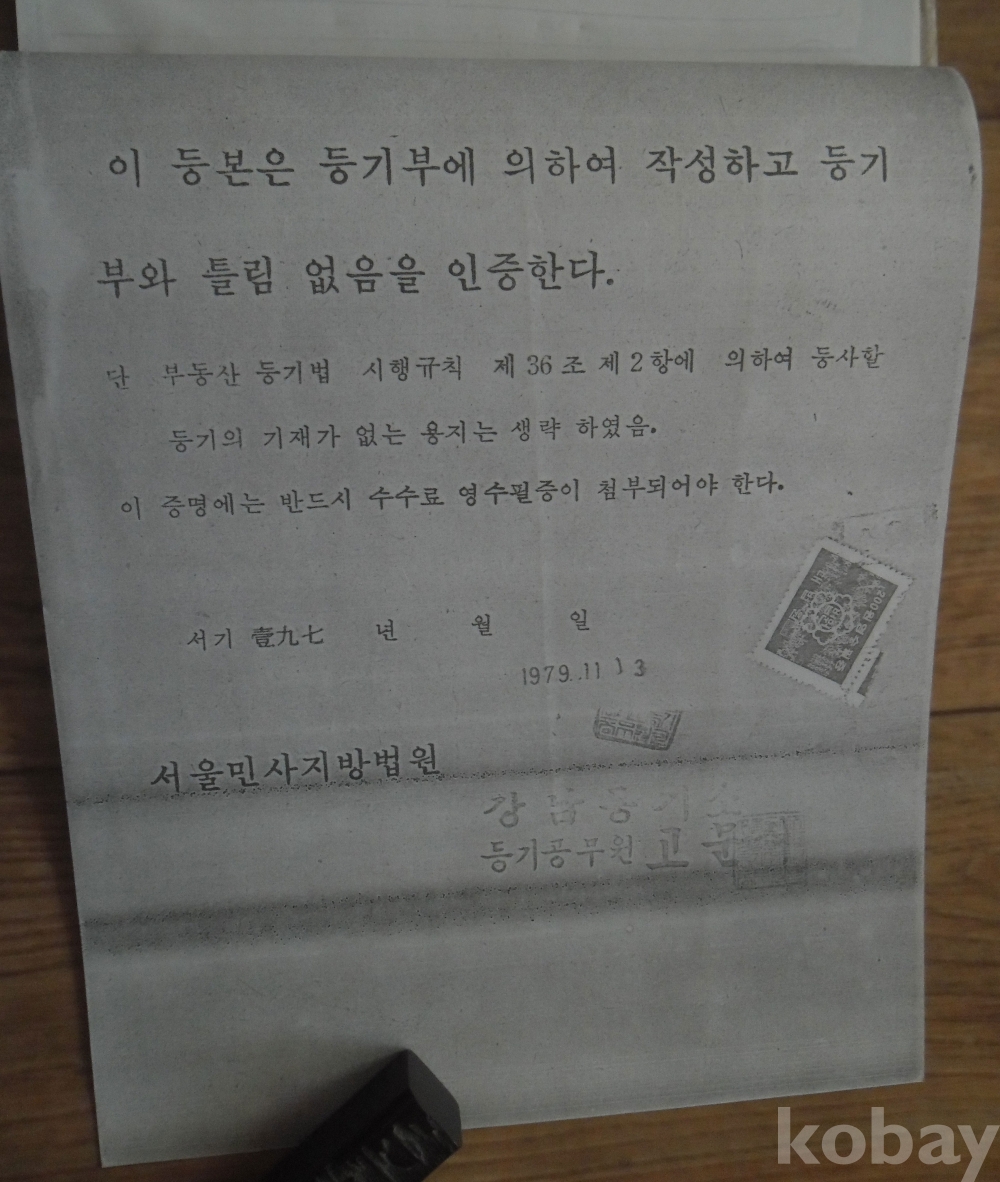 이 등본은 등기부에 의하여 작성하고 등기
부와 틀림 없음을 인증한다.
단 부동산 등기법 시행규칙 제 36 조 제 2 항에 의하여 등사할
등기의 기재가 없는 용지는 생략 하였음.
이 증명에는 반드시 수수료 영수필증이 첨부되어야 한다.
서기 壹九七 년 월 일
1979.11 13
서울민사지방법원
강남등기소
등기공무원 고문
kobay